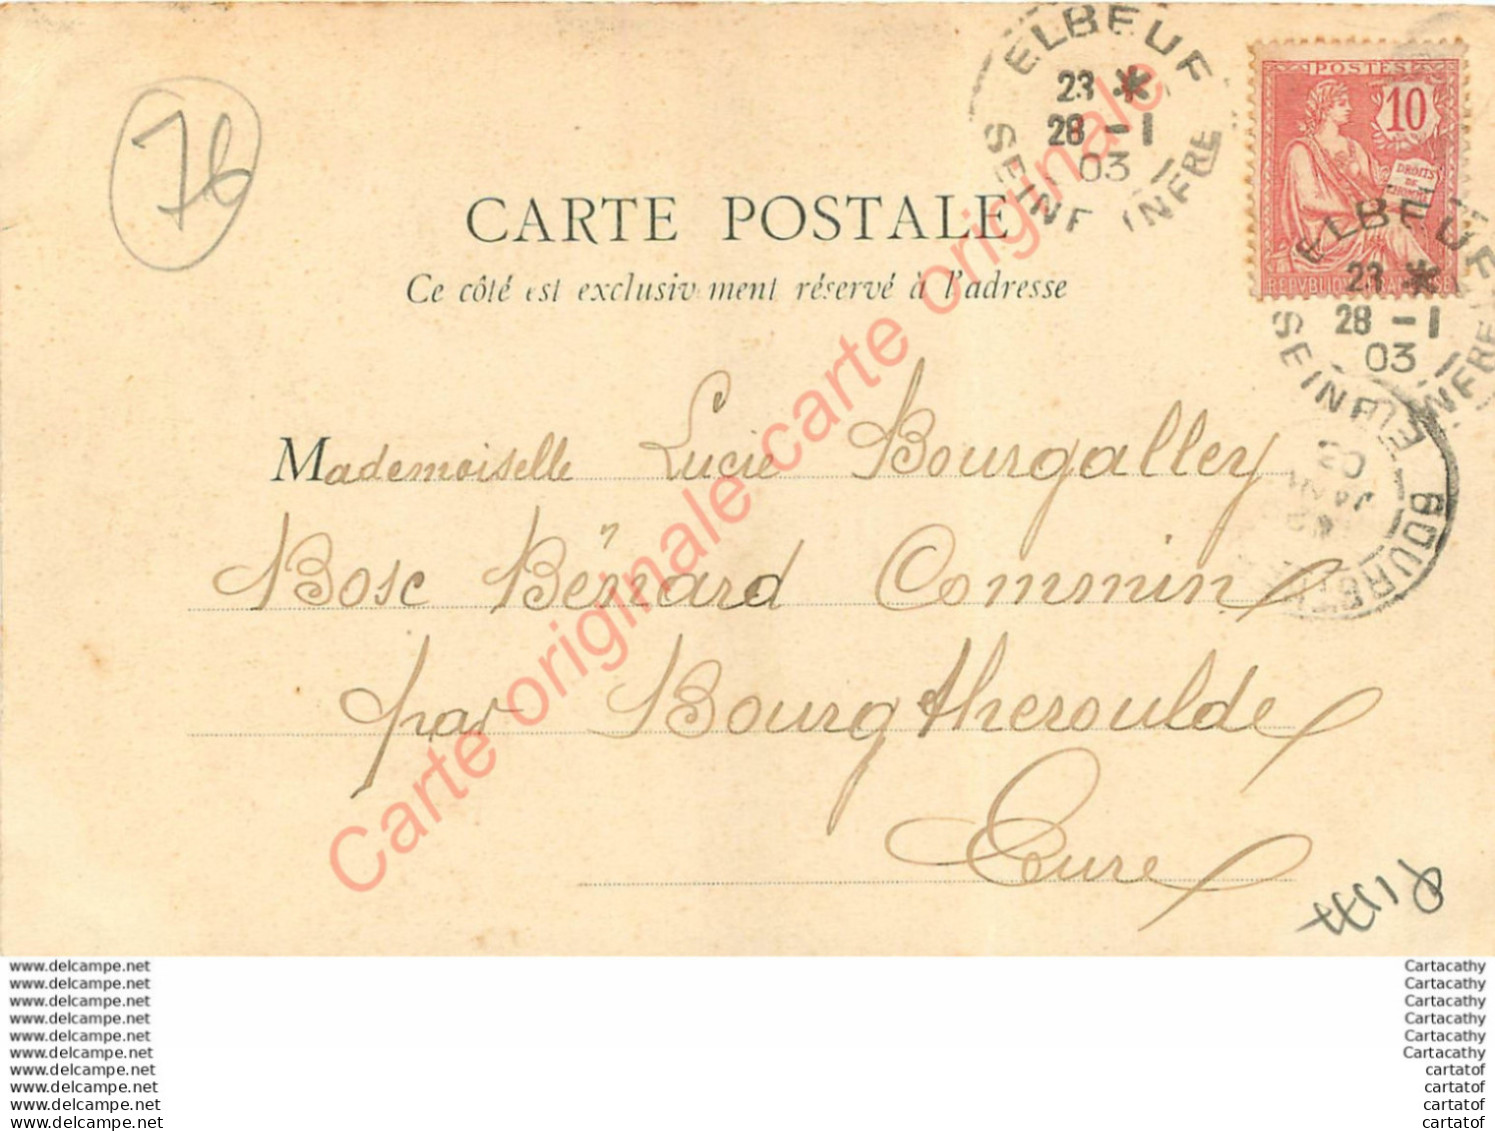 76
ELBEUF
23 *
28 -1
03
SEINE INFRE
POSTES
10
DROITS
DE
REPUBLIQUE FRANÇAISE
ELBEUF
23 *
28 -1
03
SEINE INFRE
CARTE POSTALE
Ce côté est exclusivement réservé à l'adresse
Mademoiselle Lucie Bourgalley
Bosc Bénard Commin
par Bourgtheroulde
Eure
BOURGTHEROULDE
EURE
03
Carte originale carte originale carte originale
www.delcampe.net Cartacathy
www.delcampe.net Cartacathy
www.delcampe.net Cartacathy
www.delcampe.net Cartacathy
www.delcampe.net Cartacathy
www.delcampe.net Cartacathy
www.delcampe.net cartatof
www.delcampe.net cartatof
www.delcampe.net cartatof
www.delcampe.net cartatof